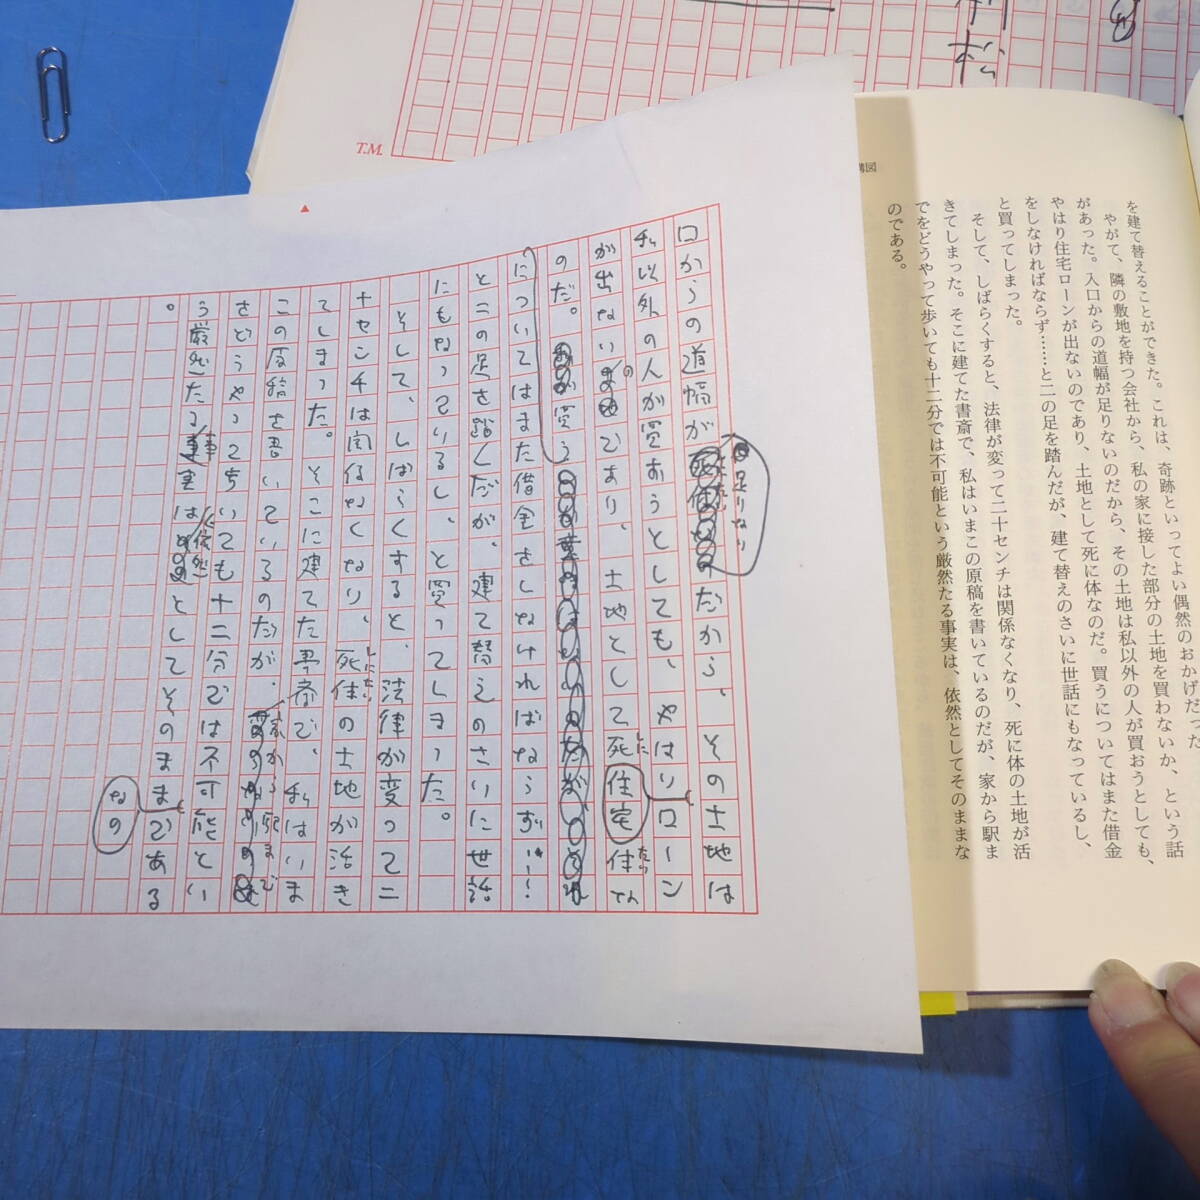 T.M.
構図
を建て替えることができた。これは、奇跡といってよい偶然のおかげだった
やがて、隣の敷地を持つ会社から、私の家に接した部分の土地を買わないか、という話
があった。入口からの道幅が足りないのだから、その土地は私以外の人が買おうとしても、
やはり住宅ローンが出ないのであり、土地として死に体なのだ。買うについてはまた借金
をしなければならず……と二の足を踏んだが、建て替えのさいに世話にもなっているし、
と買ってしまった。
そして、しばらくすると、法律が変って二十センチは関係なくなり、死に体の土地が活
きてしまった。そこに建てた書斎で、私はいまこの原稿を書いているのだが、家から駅ま
でをどうやって歩いても十二分では不可能という厳然たる事実は、依然としてそのままな
のである。
足りない
口からの道幅が だから、その土地は
私以外の人が買おうとしても、やはりローン
住宅
が出ないのであり、土地として死に体な
のだ。買う
についてはまた借金をしなければならず……
と二の足を踏んだが、建て替えのさいに世話
にもなっているし、と買ってしまった。
そして、しばらくすると、法律が変って二
十センチは関係なくなり、死に体の土地が活き
てしまった。そこに建てた書斎で、私はいま
この原稿を書いているのだが、家から駅まで
をどうやって歩いても十二分では不可能とい
う厳然たる事実は依然としてそのままである
なの
。